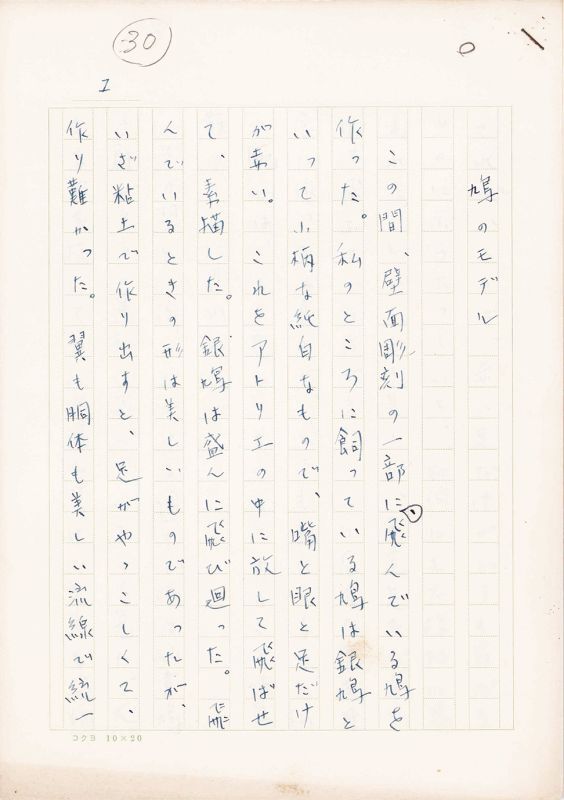 30
1
鳩のモデル
この間、壁面彫刻の一部に、飛んでいる鳩を
作った。私のところに飼っている鳩は銀鳩と
いって小柄な純白なもので、嘴と眼と足だけ
が赤い。これをアトリエの中に放して飛ばせ
て、素描した。銀鳩は盛んに飛び廻った。飛
んでいるときの形は美しいものであったが、
いざ粘土で作り出すと、足がやっこしくて、
作り難かった。翼も胴体も美しい流線で統一
コクヨ 10×20